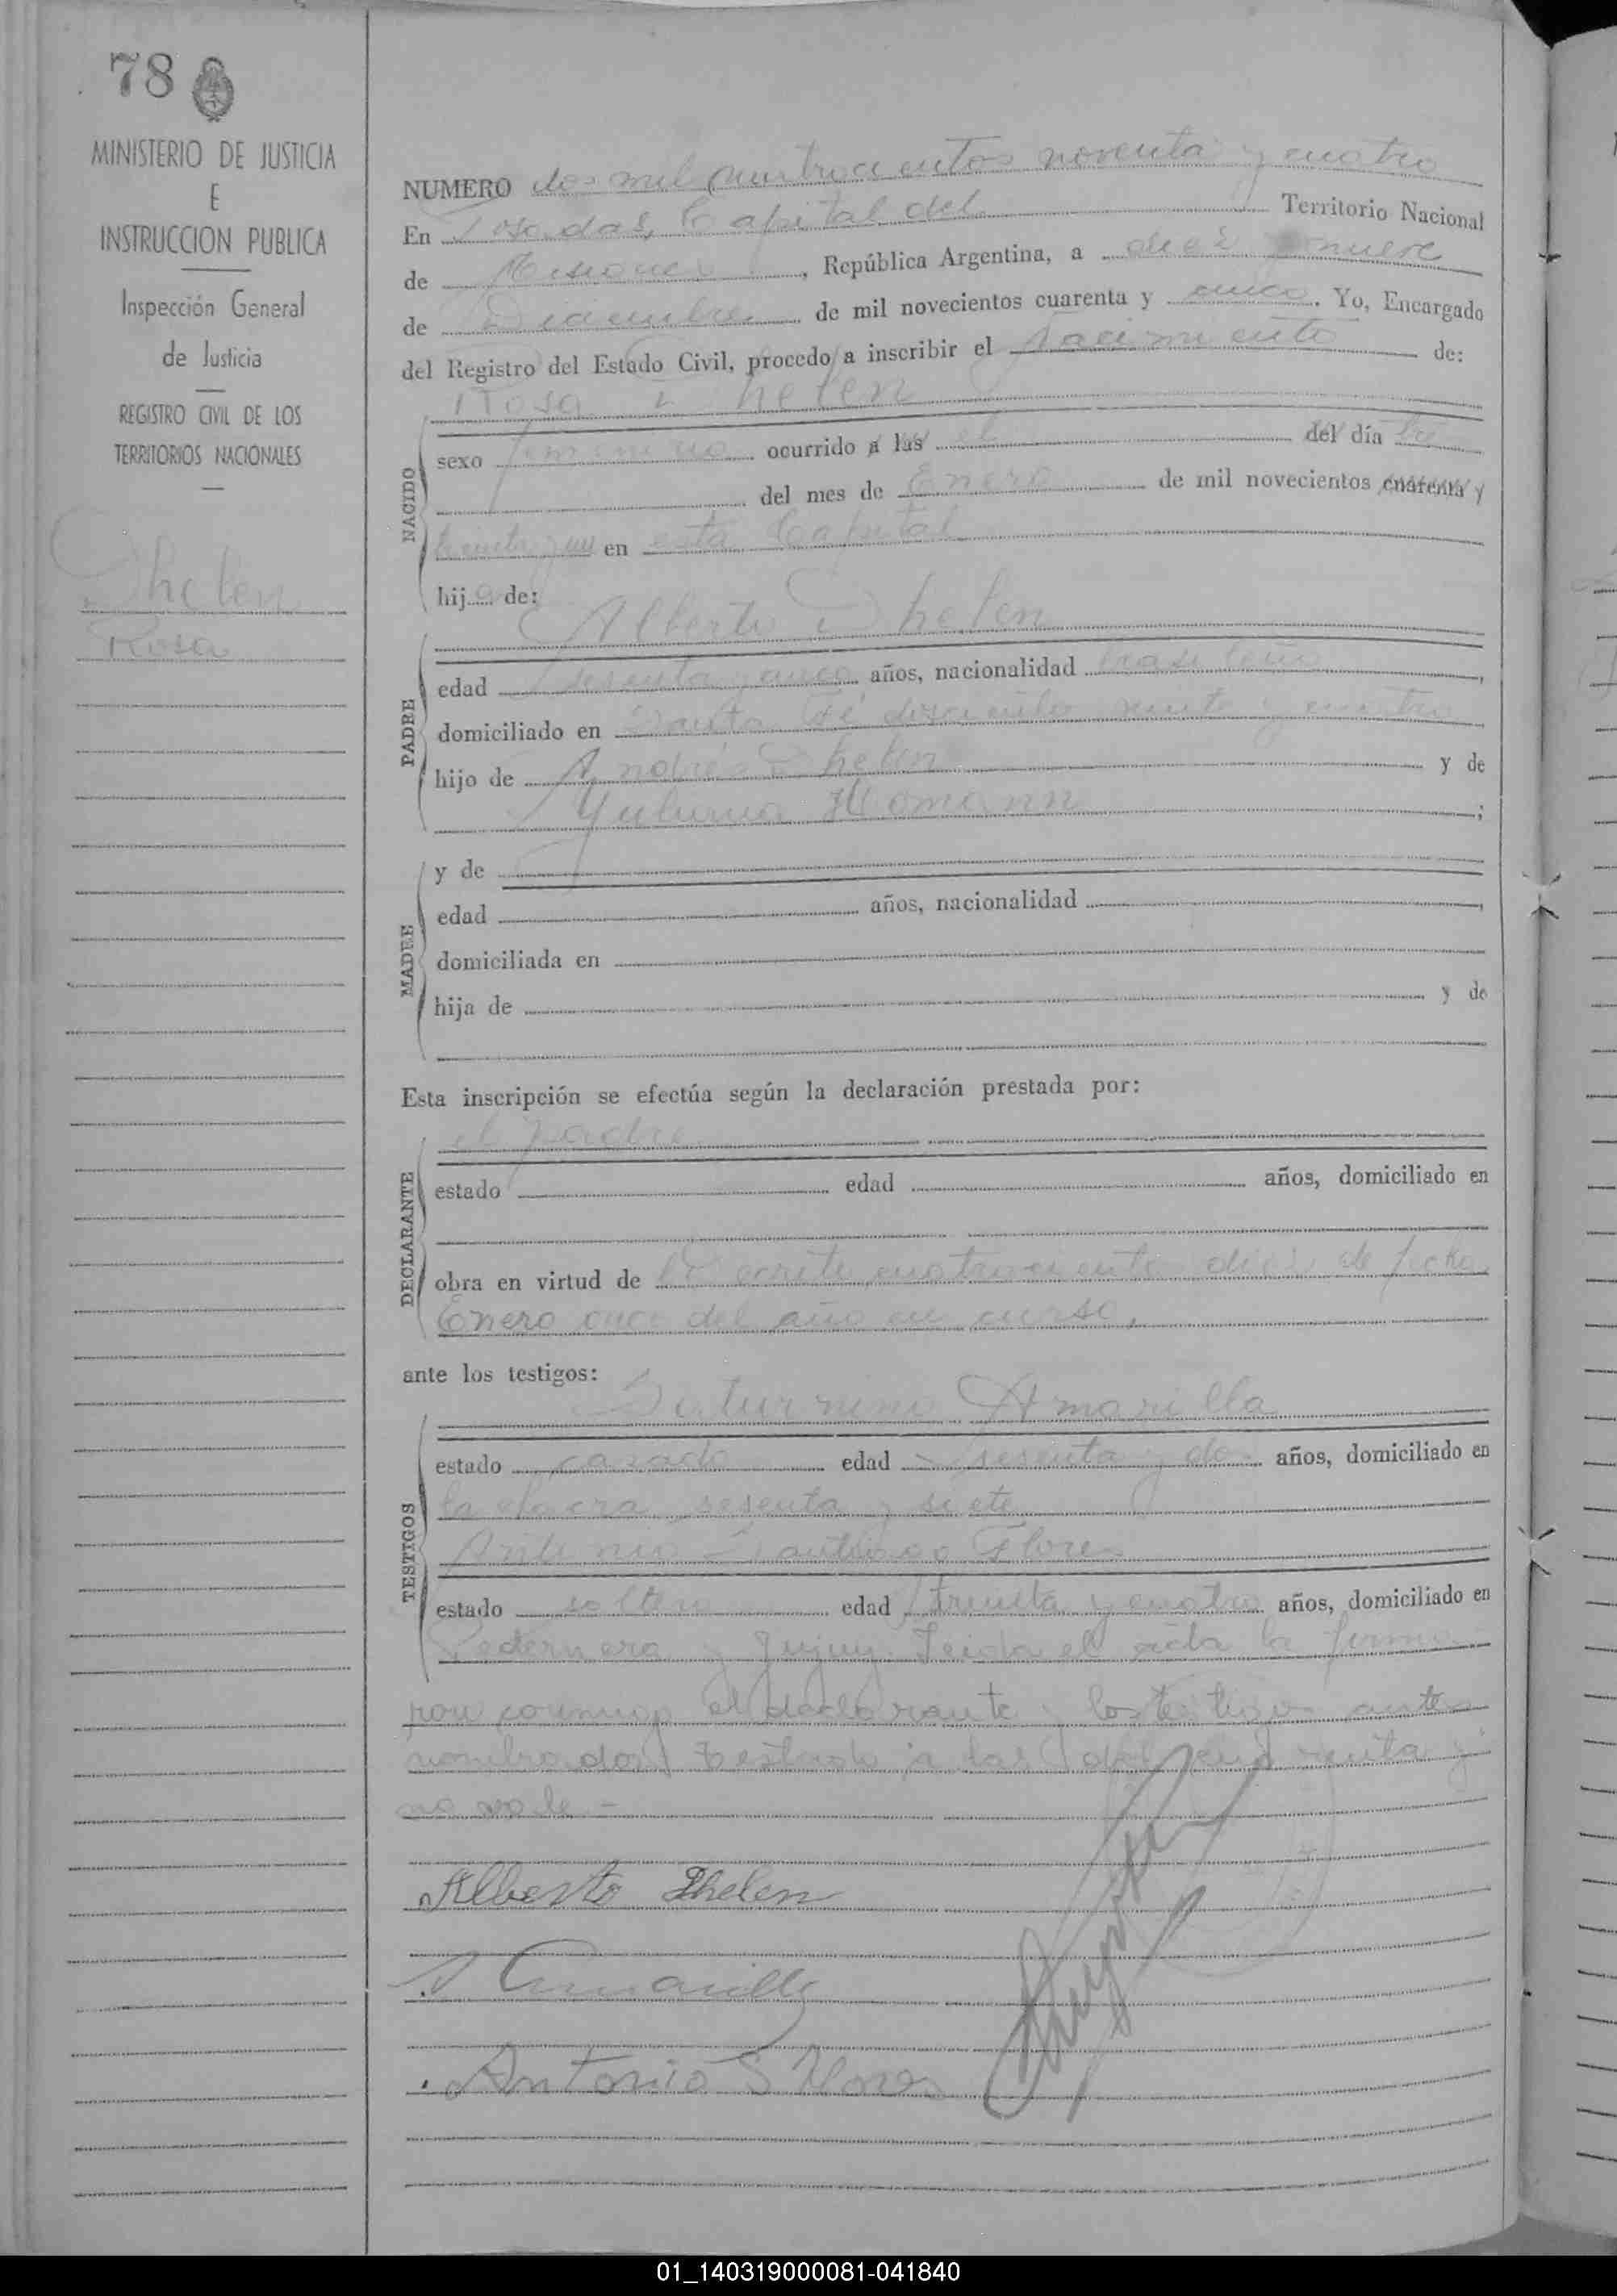 78
MINISTERIO DE JUSTICIA
E
INSTRUCCION PUBLICA
Inspección General
de Justicia
REGISTRO CIVIL DE LOS
TERRITORIOS NACIONALES
Thelen
Rosa
NUMERO dos mil cuatrocientos noventa y cuatro
En Posadas, Capital del Territorio Nacional
de Misiones, República Argentina, a diez y nueve
de Diciembre de mil novecientos cuarenta y cinco. Yo, Encargado
del Registro del Estado Civil, procedo a inscribir el Nacimiento de:
Rosa Thelen
NACIDO
sexo femenino ocurrido a las el del día
del mes de Enero de mil novecientos cuarenta y
treinta y un en esta Capital
hija de:
Alberto Thelen
PADRE
edad sesenta y cinco años, nacionalidad brasileño,
domiciliado en Santa Fé doscientos veinte y cuatro
hijo de Andrés Thelen y de
Homann;
MADRE
y de
edad años, nacionalidad ,
domiciliada en
hija de y de
Esta inscripción se efectúa según la declaración prestada por:
el padre
DECLARANTE
estado edad años, domiciliado en
obra en virtud de Decreto cuatrocientos diez de fecha
Enero once del año en curso,
ante los testigos:
Saturnino Amarilla
TESTIGOS
estado casado edad sesenta y dos años, domiciliado en
la chacra sesenta y siete
Antonio Santiago Flores
estado soltero edad treinta y cuatro años, domiciliado en
Pedernera y Jujuy Leida el acta la firma-
ron conmigo el declarante y los testigos antes
nombrados Testado: a las del cuarenta y
no vale -
Alberto Thelen
S Amarilla
Antonio S Flores
01_140319000081-041840